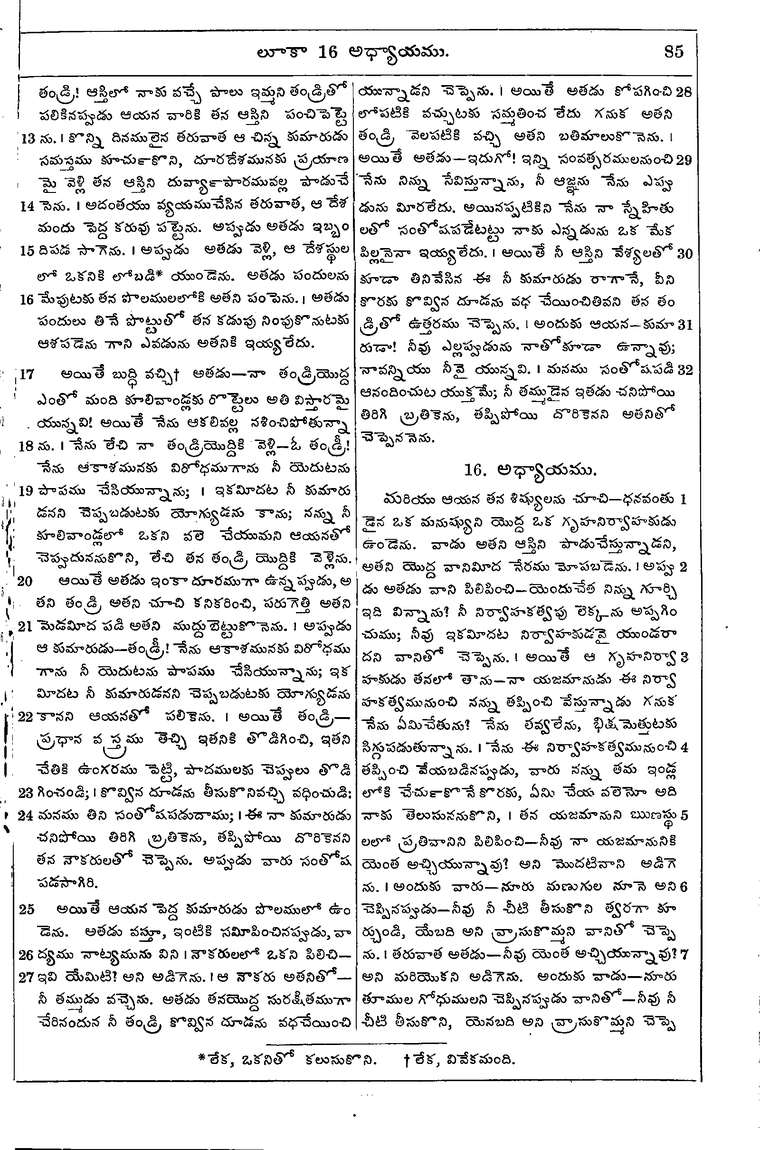 లూకా 16 అధ్యాయము. 85
తండ్రి! ఆస్తిలో నాకు వచ్చే పాలు ఇమ్మని తండ్రితో
పలికినప్పుడు ఆయన వారికి తన ఆస్తిని పంచిపెట్టె
13 ను. । కొన్ని దినములైన తరువాత ఆ చిన్న కుమారుడు
సమస్తము కూర్చుకొని, దూరదేశమునకు ప్రయాణ
మై వెళ్లి తన ఆస్తిని దుర్వ్యాపారమువల్ల పాడుచే
14 సెను. । అదంతయు వ్యయముచేసిన తరువాత, ఆ దేశ
మందు పెద్ద కరువు పట్టెను. అప్పుడు అతడు ఇబ్బం
15 దిపడ సాగెను. । అప్పుడు అతడు వెళ్లి, ఆ దేశస్థుల
లో ఒకనికి లోబడి* యుండెను. అతడు పందులను
16 మేపుటకు తన పొలములలోకి అతని పంపెను. । అతడు
పందులు తినే పొట్టుతో తన కడుపు నింపుకొనుటకు
ఆశపడెను గాని ఎవడును అతనికి ఇయ్యలేదు.
17 అయితే బుద్ధి వచ్చి† అతడు—నా తండ్రియొద్ద
ఎంతో మంది కూలివాండ్లకు రొట్టెలు అతి విస్తారమై
యున్నవి! అయితే నేను ఆకలివల్ల నశించిపోతున్నా
18 ను. । నేను లేచి నా తండ్రియొద్దికి వెళ్లి—ఓ తండ్రీ!
నేను ఆకాశమునకు విరోధముగాను నీ యెదుటను
19 పాపము చేసియున్నాను; । ఇకమీదట నీ కుమారు
డనని చెప్పబడుటకు యోగ్యుడను కాను; నన్ను నీ
కూలివాండ్లలో ఒకని వలె చేయుమని ఆయనతో
చెప్పుదుననుకొని, లేచి తన తండ్రి యొద్దికి వెళ్లెను.
20 అయితే అతడు ఇంకా దూరముగా ఉన్నప్పుడు, అ
తని తండ్రి అతని చూచి కనికరించి, పరుగెత్తి అతని
21 మెడమీద పడి అతని ముద్దుబెట్టుకొనెను. । అప్పుడు
ఆ కుమారుడు—తండ్రీ! నేను ఆకాశమునకు విరోధము
గాను నీ యెదుటను పాపము చేసియున్నాను; ఇక
మీదట నీ కుమారుడనని చెప్పబడుటకు యోగ్యుడను
22 కానని ఆయనతో పలికెను. । అయితే తండ్రి—
ప్రధాన వస్త్రము తెచ్చి ఇతనికి తొడిగించి, ఇతని
చేతికి ఉంగరము పెట్టి, పాదములకు చెప్పులు తొడి
23 గించండి; । కొవ్విన దూడను తీసుకొనివచ్చి వధించుడి;
24 మనము తిని సంతోషపడుదాము; । ఈ నా కుమారుడు
చనిపోయి తిరిగి బ్రతికెను, తప్పిపోయి దొరికెనని
తన నౌకరులతో చెప్పెను. అప్పుడు వారు సంతోష
పడసాగిరి.
25 అయితే ఆయన పెద్ద కుమారుడు పొలములో ఉం
డెను. అతడు వస్తూ, ఇంటికి సమీపించినప్పుడు, వా
26 ద్యము నాట్యమును విని । నౌకరులలో ఒకని పిలిచి—
27 ఇవి యేమిటి? అని అడిగెను. । ఆ నౌకరు అతనితో—
నీ తమ్ముడు వచ్చెను. అతడు తనయొద్ద సురక్షితముగా
చేరినందున నీ తండ్రి కొవ్విన దూడను వధచేయించి
యున్నాడని చెప్పెను. । అయితే అతడు కోపగించి 28
లోపటికి వచ్చుటకు సమ్మతించ లేదు గనుక అతని
తండ్రి వెలపటికి వచ్చి అతని బతిమాలుకొనెను. ।
అయితే అతడు—ఇదుగో! ఇన్ని సంవత్సరములనుంచి 29
నేను నిన్ను సేవిస్తున్నాను, నీ ఆజ్ఞను నేను ఎప్పు
డును మీరలేదు. అయినప్పటికిని నేను నా స్నేహితు
లతో సంతోషపడేటట్టు నాకు ఎన్నడును ఒక మేక
పిల్లనైనా ఇయ్యలేదు. । అయితే నీ ఆస్తిని వేశ్యలతో 30
కూడా తినివేసిన ఈ నీ కుమారుడు రాగానే, వీని
కొరకు కొవ్విన దూడను వధ చేయించితివని తన తం
డ్రితో ఉత్తరము చెప్పెను. । అందుకు ఆయన—కుమా 31
రుడా! నీవు ఎల్లప్పుడును నాతోకూడా ఉన్నావు;
నావన్నియు నీవై యున్నవి. । మనము సంతోషపడి 32
ఆనందించుట యుక్తమే; నీ తమ్ముడైన ఇతడు చనిపోయి
తిరిగి బ్రతికెను, తప్పిపోయి దొరికెనని అతనితో
చెప్పెననెను.
16. అధ్యాయము.
మరియు ఆయన తన శిష్యులను చూచి—ధనవంతు 1
డైన ఒక మనుష్యుని యొద్ద ఒక గృహనిర్వాహకుడు
ఉండెను. వాడు అతని ఆస్తిని పాడుచేస్తున్నాడని,
అతని యొద్ద వానిమీద నేరము మోపబడెను. । అప్పు 2
డు అతడు వాని పిలిపించి—యెందుచేత నిన్ను గూర్చి
ఇది విన్నాను? నీ నిర్వాహకత్వపు లెక్కను అప్పగిం
చుము; నీవు ఇకమీదట నిర్వాహకుడవై యుండరా
దని వానితో చెప్పెను. । అయితే ఆ గృహనిర్వా 3
హకుడు తనలో తాను—నా యజమానుడు ఈ నిర్వా
హకత్వమునుంచి నన్ను తప్పించి వేస్తున్నాడు గనుక
నేను ఏమిచేతును? నేను తవ్వలేను, భిక్షమెత్తుటకు
సిగ్గుపడుతున్నాను. । నేను ఈ నిర్వాహకత్వమునుంచి 4
తప్పించి వేయబడినప్పుడు, వారు నన్ను తమ ఇండ్ల
లోకి చేర్చుకొనే కొరకు, ఏమి చేయ వలెనో అది
నాకు తెలుసుననుకొని, । తన యజమానుని ఋణస్థు 5
లలో ప్రతివానిని పిలిపించి—నీవు నా యజమానునికి
యెంత అచ్చియున్నావు? అని మొదటివాని అడిగె
ను. । అందుకు వారు—నూరు మణుగుల నూనె అని 6
చెప్పినప్పుడు—నీవు నీ చీటి తీసుకొని త్వరగా కూ
ర్చుండి, యేబది అని వ్రాసుకొమ్మని వానితో చెప్పె
ను. । తరువాత అతడు—నీవు యెంత అచ్చియున్నావు? 7
అని మరియొకని అడిగెను. అందుకు వాడు—నూరు
తూముల గోధుములని చెప్పినప్పుడు వానితో—నీవు నీ
చీటి తీసుకొని, యెనబది అని వ్రాసుకొమ్మని చెప్పె
*లేక, ఒకనితో కలుసుకొని. †లేక, వివేకమంది.